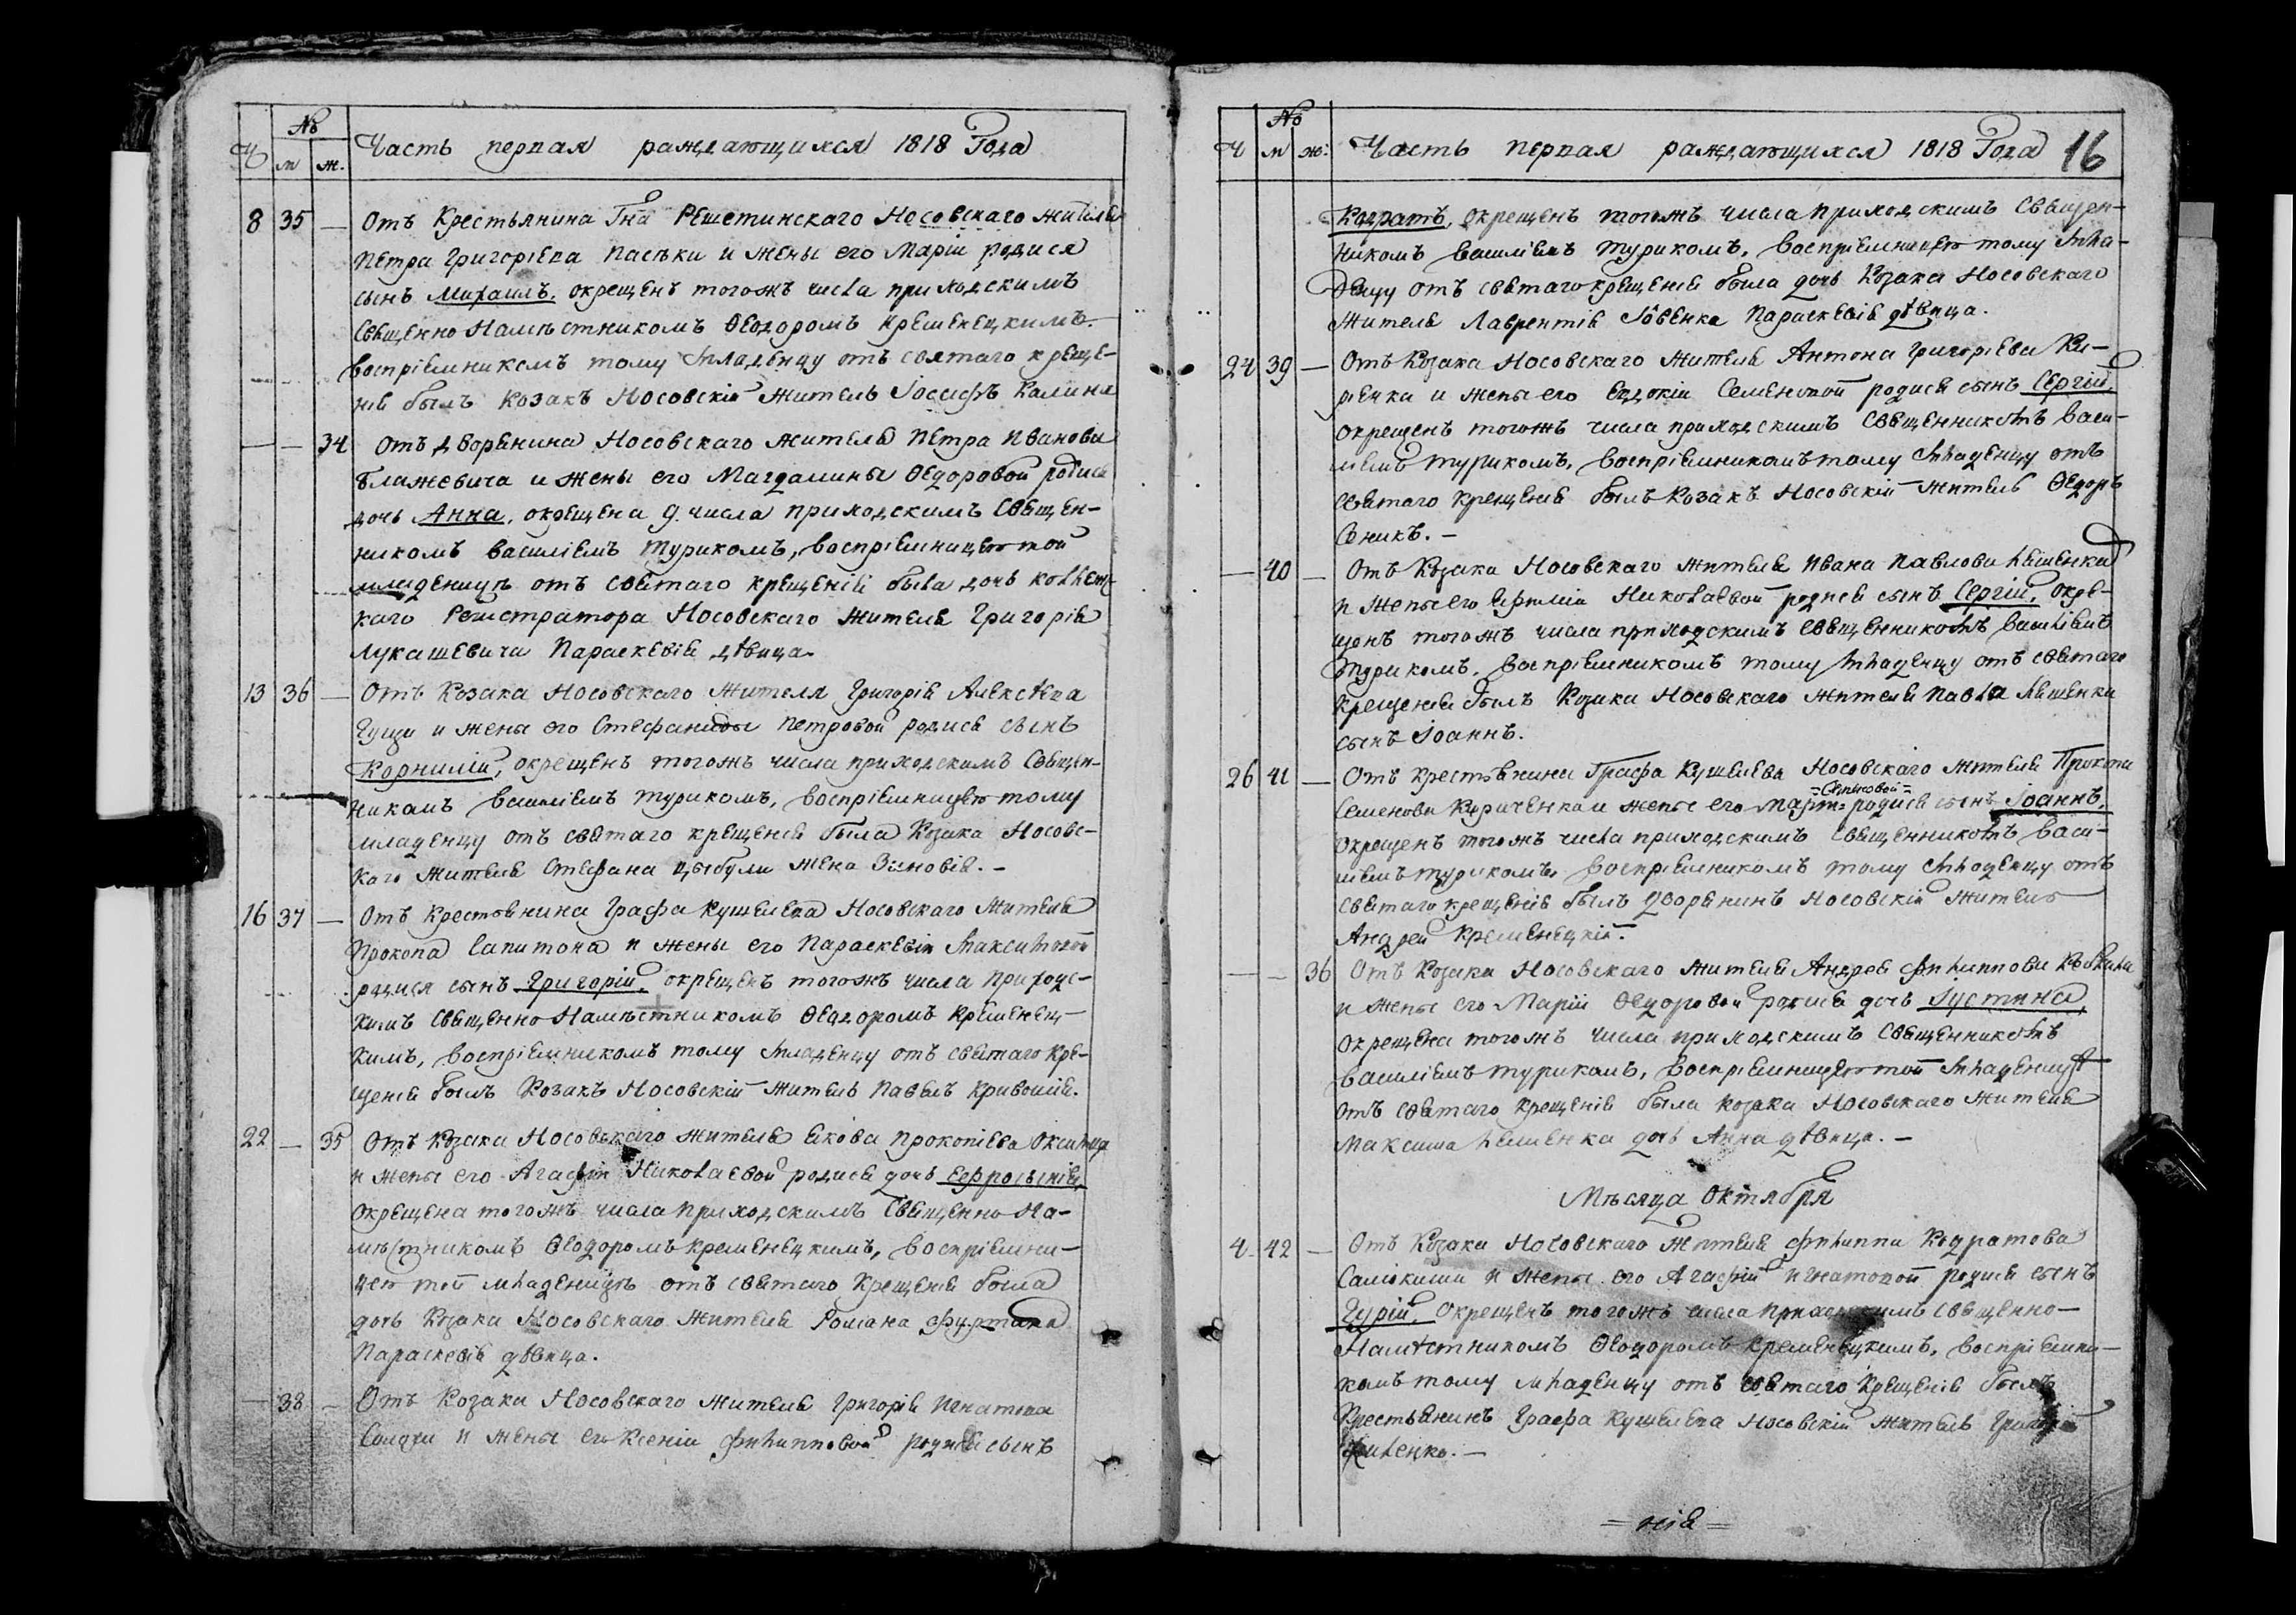 №
Ч м ж. Часть первая раждающихся 1818 Года
8 35 — Отъ Крестьянина Гна Решетинскаго Носовскаго жителя
Петра Григоріева Пасѣки и жены его Маріи родися
сынъ Михаилъ, окрещенъ тогожъ числа приходскимъ
Священно Намѣстникомъ Ѳеодоромъ Кременецкимъ.
воспріемникомъ тому младенцу отъ святаго креще-
нія былъ козакъ Носовскій житель Іосифъ Калина
— — 34 Отъ дворянина Носовскаго жителя Петра Иванова
Блажевича и жены его Магдалины Ѳедоровой родися
дочь Анна, окрещена 9. числа приходскимъ Священ-
никомъ Василіемъ Турикомъ, воспріемницею той
младеницѣ отъ святаго крещенія была дочь коллеж-
каго Регистратора Носовскаго жителя Григорія
Лукашевича Параскевія дѣвица.
13 36 — Отъ Козака Носовскаго Жителя Григорія Алексѣева
Гущи и жены его Стефаниды Петровой родися сынъ
Корнилій, окрещенъ тогожъ числа приходскимъ Священ-
никомъ Василіемъ Турикомъ, воспріемницею тому
младенцу отъ святаго крещенія была Козака Носовс-
каго жителя Стефана Цыбули жена Зиновія. —
16 37 — Отъ Крестянина Графа Кушелева Носовскаго Жителя
Прокопа Сапитона и жены его Параскевіи Максимовой
родися сынъ Григорій, окрещенъ тогожъ числа приходс-
кимъ Священно Намѣстникомъ Ѳеодоромъ Кременец-
кимъ, воспріемникомъ тому младенцу отъ святаго кре-
щенія былъ Козакъ Носовскій житель Павелъ Кривошія.
22 — 35 Отъ Козака Носовскаго жителя Якова Прокопіева
и жены его Агафіи Николаевой родися дочь Ефросинія,
окрещена тогожъ числа приходскимъ Священно На-
мѣстникомъ Ѳеодоромъ Кременецкимъ, воспріемни-
цею той младеницѣ отъ святаго крещенія была
дочь Козака Носовскаго Жителя Романа Фурмана
Параскевія дѣвица.
— 38 — Отъ Козака Носовскаго жителя Григорія Игнатова
и жены его Ксеніи Филипповой родися сынъ
№
Ч м ж. Часть первая раждающихся 1818 Года 16
Кодратъ, окрещенъ тогожъ числа приходскимъ Священ-
никомъ Василіемъ Турикомъ, воспріемницею тому мла-
денцу отъ святаго крещенія была дочь Козака Носовскаго
Жителя Лаврентія Іовенка Параскевія дѣвица.
24 39 — Отъ Козака Носовскаго Жителя Антона Григоріева Ки-
рѣенка и жены его Евдокіи Семеновой родися сынъ Сергій,
окрещенъ тогожъ числа приходскимъ Священникомъ Васи-
ліемъ Турикомъ, воспріемникомъ тому младенцу отъ
святаго крещенія былъ Козакъ Носовскій житель Ѳедоръ
Сѣникъ. —
— 40 — Отъ Козака Носовскаго жителя Ивана Павлова Ляшенка
и жены его Ефиміи Николаевой родися сынъ Сергій, окре-
щенъ тогожъ числа приходскимъ Священникомъ Василіемъ
Турикомъ, воспріемникомъ тому младенцу отъ святаго
крещенія былъ Козака Носовскаго жителя Павла Ляшенка
сынъ Іоаннъ.
26 41 — Отъ Крестянина Графа Кушелева Носовскаго жителя Прокопа
Семенова Кириченка и жены его родися сынъ Іоаннъ,
окрещенъ тогожъ числа приходскимъ Священникомъ Васи-
ліемъ Турикомъ, воспріемникомъ тому младенцу отъ
святаго крещенія былъ Дворянинъ Носовскій житель
Андрей Кременецкій.
— — 36 Отъ Козака Носовскаго жителя Андрея Филиппова
и жены его Маріи Ѳедоровой родися дочь Іустина,
окрещена тогожъ числа приходскимъ Священникомъ
Василіемъ Турикомъ, воспріемницею той младеницѣ
отъ святаго крещенія была Козака Носовскаго жителя
Максима Ляшенка дочь Анна дѣвица. —
Мѣсяца Октября
4 42 — Отъ Козака Носовскаго жителя Филиппа Кодратова
и жены его Агафіи Игнатовой родися сынъ
Гурій, окрещенъ тогожъ числа приходскимъ Священно-
Намѣстникомъ Ѳеодоромъ Кременецкимъ, воспріемни-
комъ тому младенцу отъ святаго крещенія былъ
Крестьянинъ Графа Кушелева Носовскій житель Григорій